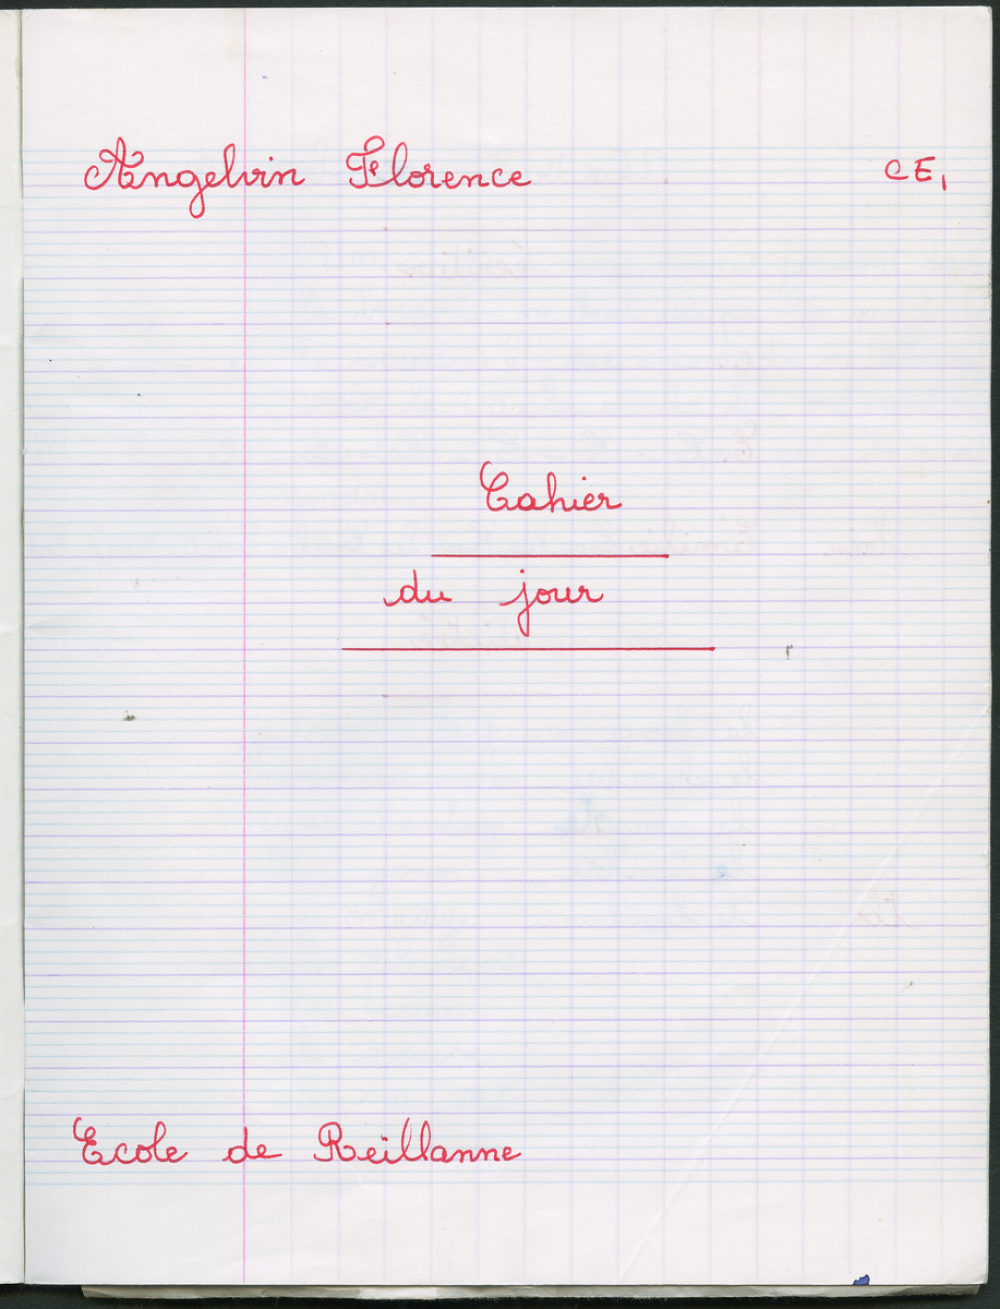 Angelvin Florence CE1
Cahier
du jour
Ecole de Reillanne